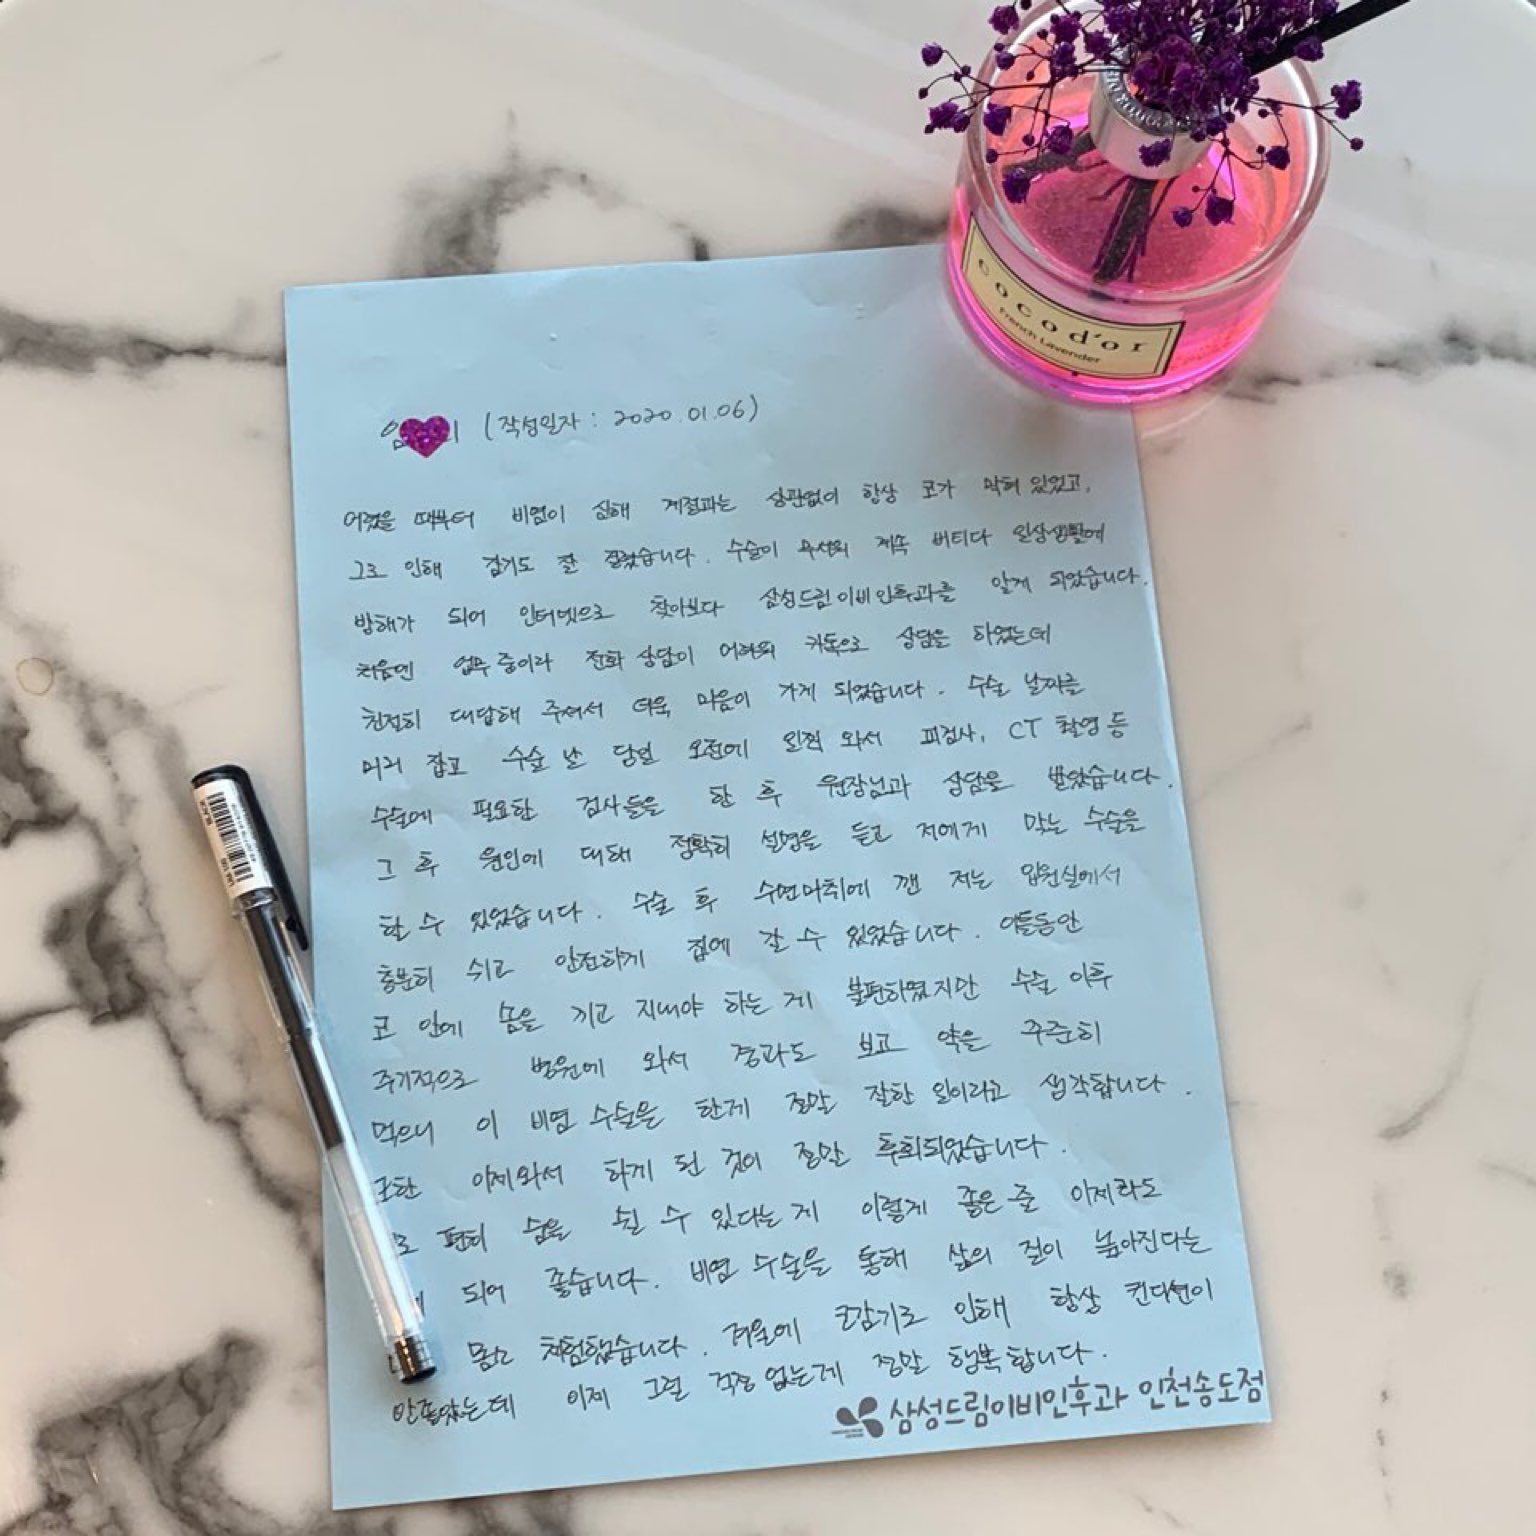 cocod'or
French Lavender
(작성일자 : 2020.01.06)
어렸을 때부터 비염이 심해 계절과는 상관없이 항상 코가 막혀 있었고,
그로 인해 감기도 잘 걸렸습니다. 수술이 무서워 계속 버티다 일상생활에
방해가 되어 인터넷으로 찾아보다 삼성드림이비인후과를 알게 되었습니다.
처음엔 업무중이라 전화 상담이 어려워 카톡으로 상담을 하였는데
친절히 대답해 주셔서 더욱 마음이 가게 되었습니다. 수술 날짜를
미리 잡고 수술 날 당일 오전에 일찍 와서 피검사, CT 촬영 등
수술에 필요한 검사들을 한 후 원장님과 상담을 받았습니다.
그 후 원인에 대해 정확히 설명을 듣고 저에게 맞는 수술을
할 수 있었습니다. 수술 후 수면마취에 깬 저는 입원실에서
충분히 쉬고 안전하게 집에 갈 수 있었습니다. 이틀동안
코 안에 솜을 끼고 지내야 하는 게 불편하였지만 수술 이후
주기적으로 병원에 와서 경과도 보고 약을 꾸준히
먹으니 이 비염 수술을 한게 정말 잘한 일이라고 생각합니다.
또한 이제와서 하게 된 것이 정말 후회되었습니다.
로 편히 숨을 쉴 수 있다는 게 이렇게 좋은 줄 이제라도
되어 좋습니다. 비염 수술을 통해 삶의 질이 높아진다는
몸소 체험했습니다. 겨울에 코감기로 인해 항상 컨디션이
안좋았는데 이제 그럴 걱정 없는게 정말 행복합니다.
삼성드림이비인후과 인천송도점